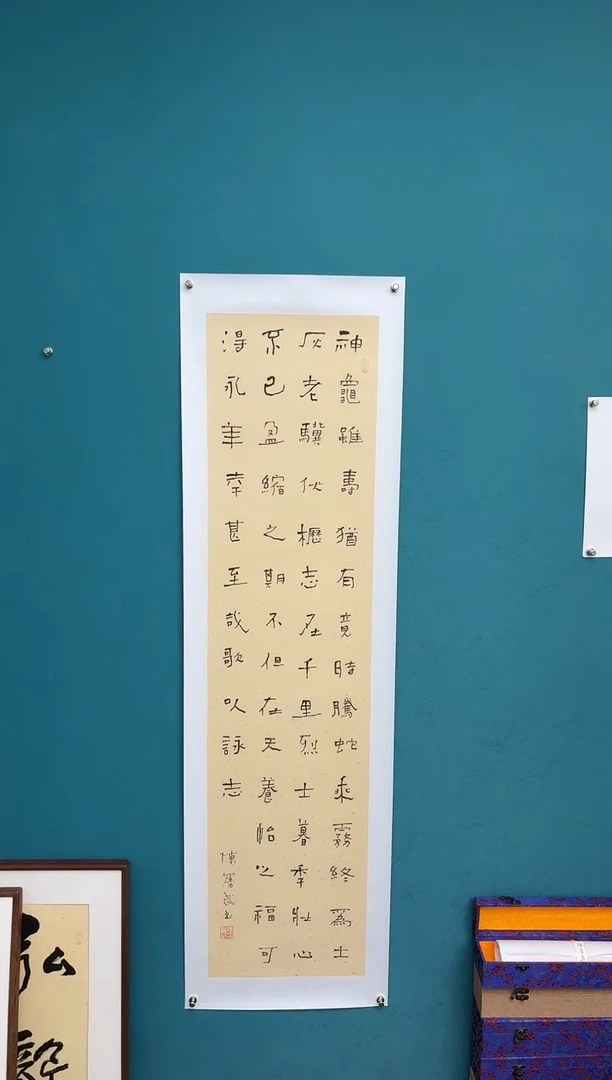 神龜雖壽猶有竟時騰蛇乘霧終爲土
灰老驥伏櫪志在千里烈士暮年壯心
不已盈縮之期不但在天養怡之福可
得永年幸甚至哉歌以詠志
陳
弘毅